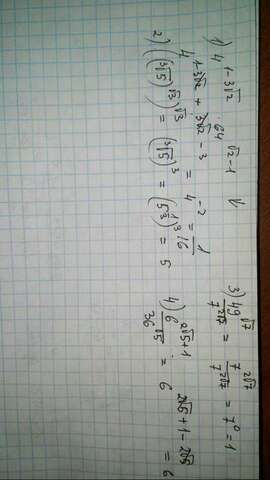 1) 4^{1-3√2} · 64^{√2-1} =
4^{1-3√2+3√2-3} = 4^{-2} = 1/16
2) ((∛5)^{√3})^{√3} = (∛5)^3 = (5^{1/3})^3 = 5
3) 49^{√7} / 7^{2√7} = 7^{2√7} / 7^{2√7} = 7^0 = 1
4) 6^{2√5+1} / 36^{√5} = 6^{2√5+1-2√5} = 6